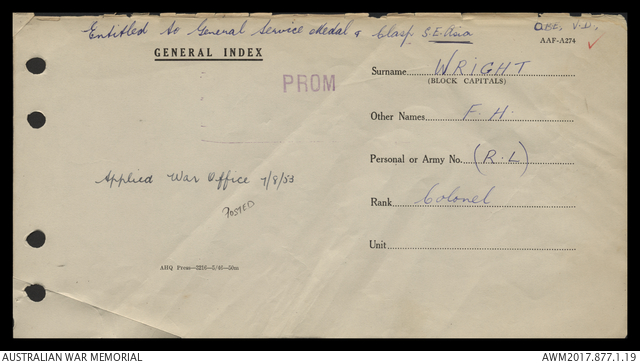 Entitled to General Service Medal & Clasp S.E. Asia
OBE, V.D.
AAF-A274
GENERAL INDEX
Surname WRIGHT
(BLOCK CAPITALS)
PROM
Other Names F. H.
Personal or Army No. (R.L)
Applied War Office 7/8/53
POSTED
Rank Colonel
Unit
AHQ Press—5216—5/45—50m
AUSTRALIAN WAR MEMORIAL
AWM2017.877.1.19